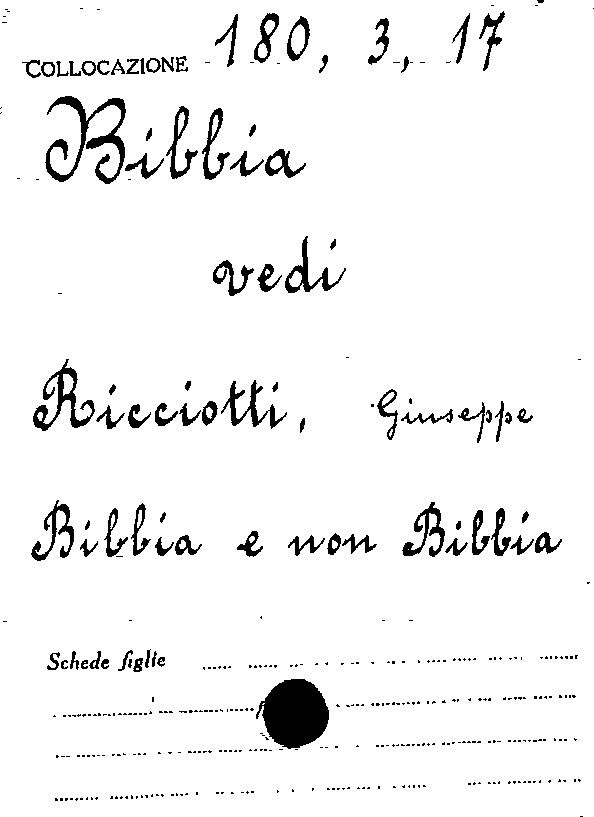 COLLOCAZIONE 180, 3, 17
Bibbia
vedi
Ricciotti, Giuseppe
Bibbia e non Bibbia
Schede figlie